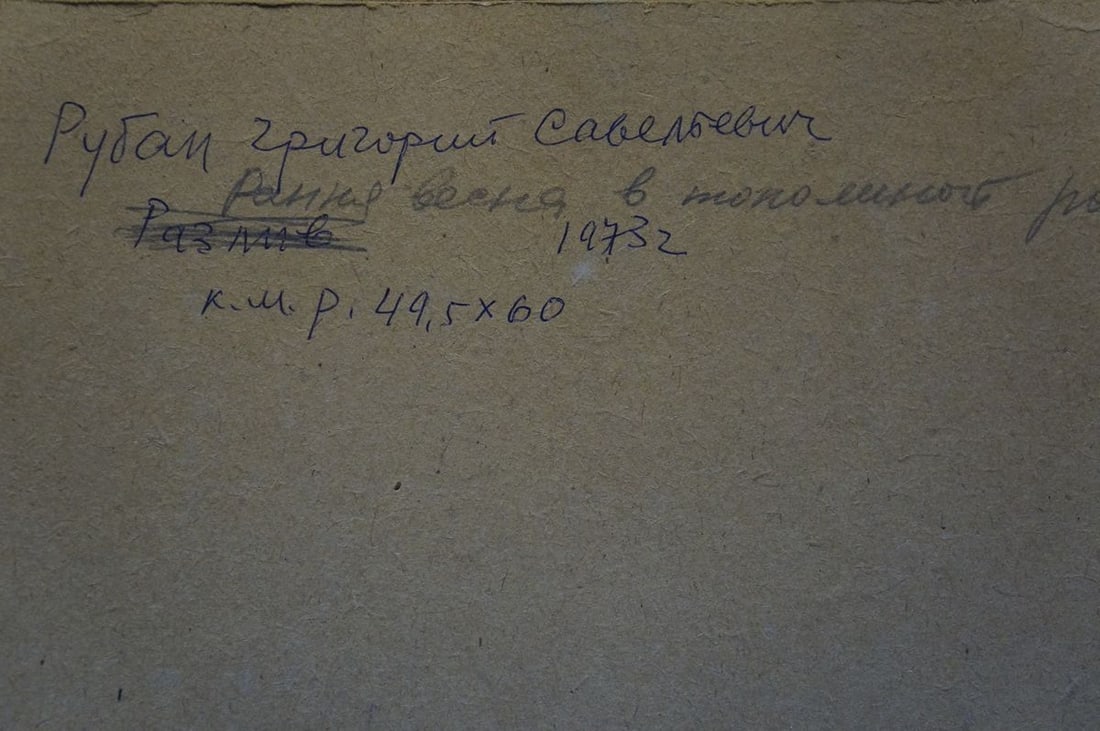 Рубан Григорий Савельевич
Рання весна в тополиной
Разлив 1973г
к.м.р. 49,5х60